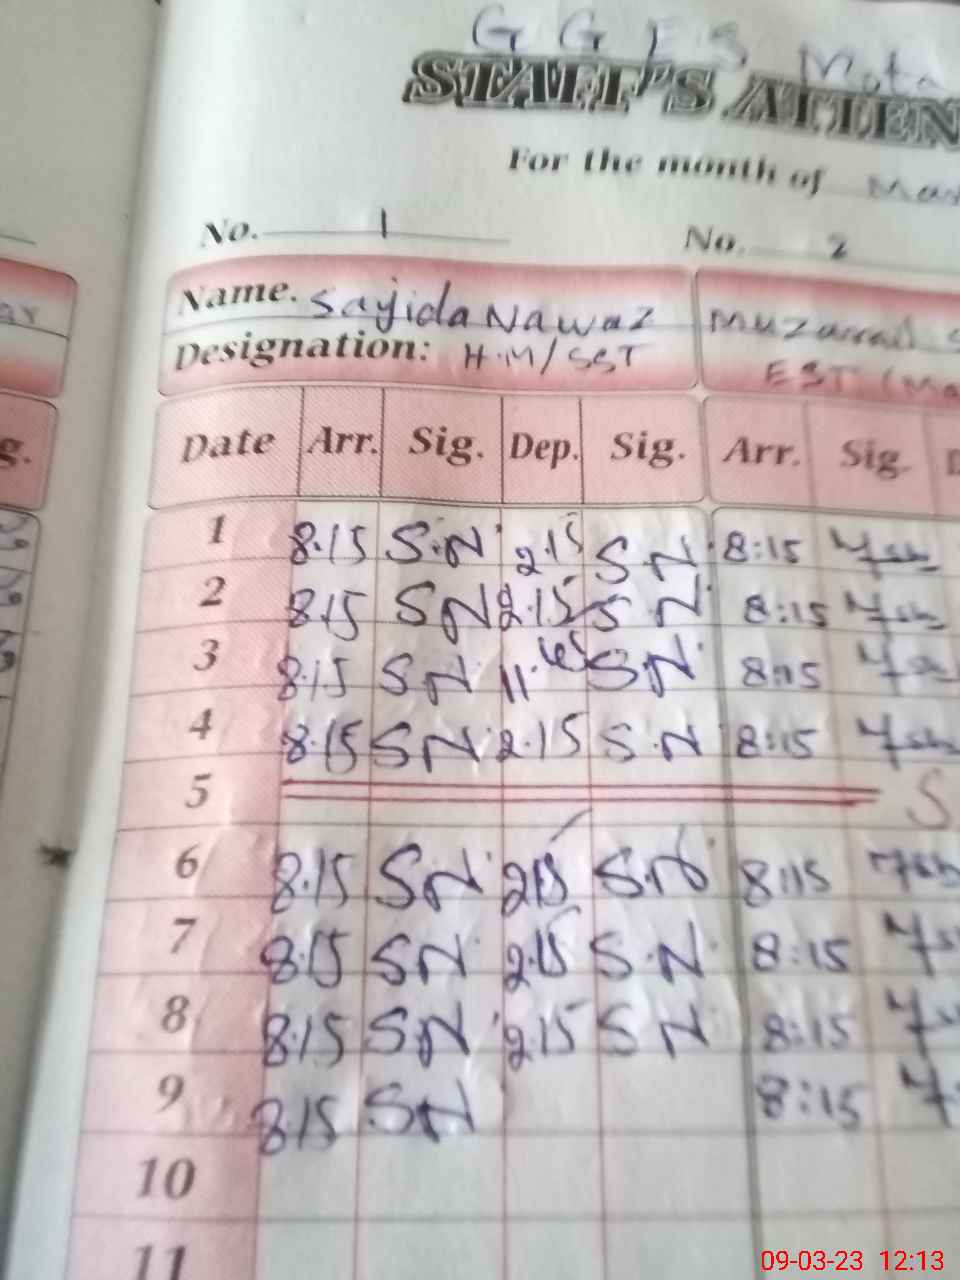 G G E S Mota
STAFF'S ATTEN
For the month of Mar
No. 1 No. 2
Name. Sajida Nawaz
Designation: H.M/SST EST (Ma
Date Arr. Sig. Dep. Sig. Arr. Sig.
1 8.15 S.N 2.15 S.N 8:15
2 8.15 SN 2.15 S N 8:15
3 8.15 SN 11. SN 8:15
4 8.15 SN 2.15 S.N 8:15
5 S
6 8.15 SN 2.15 S.N 8:15
7 8.15 SN 2.15 S.N 8:15
8 8.15 SN 2.15 SN 8:15
9 8.15 SN 8:15
10
11
09-03-23 12:13